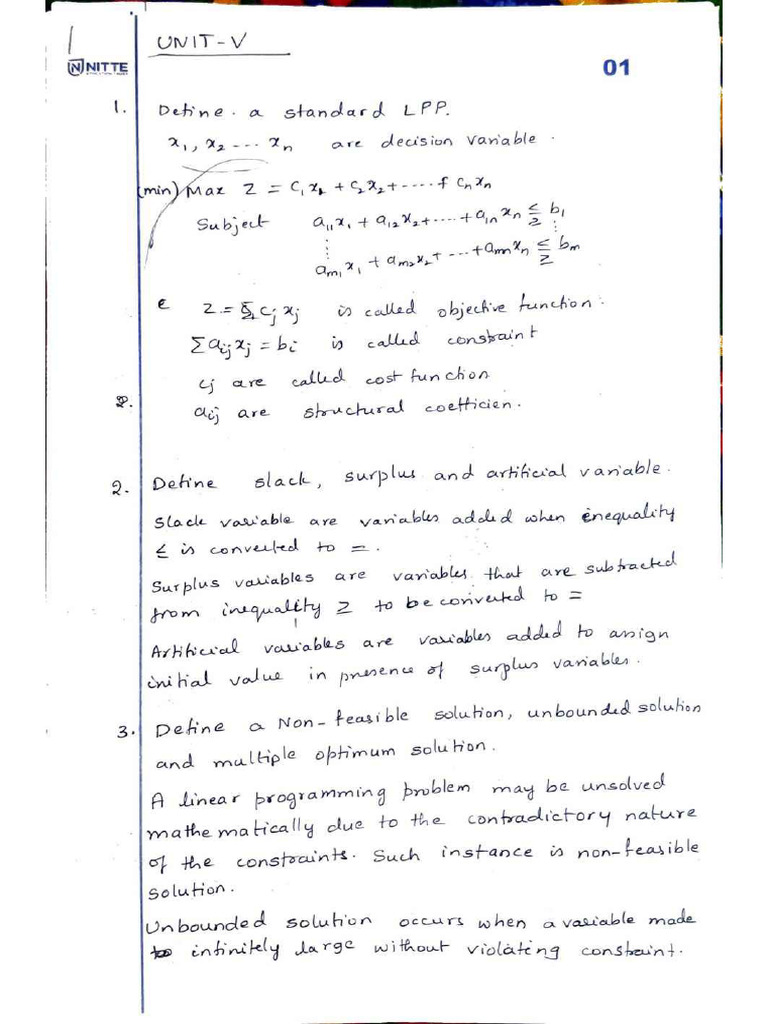 1
UNIT-V
NITTE
01
1. Define a standard LPP.
x₁, x₂ --- xₙ are decision variable.
(min) Max Z = C₁x₁ + C₂x₂ + ----- + Cₙxₙ
Subject a₁₁x₁ + a₁₂x₂ + ---- + a₁ₙxₙ ≤ ≥ b₁
⋮ ⋮
aₘ₁x₁ + aₘ₂x₂ + --- + aₘₙxₙ ≤ ≥ bₘ
Z = Σ cⱼxⱼ is called objective function.
Σ aᵢⱼxⱼ = bᵢ is called constraint
cⱼ are called cost function
2.
aᵢⱼ are structural coefficien.
2. Define slack, surplus and artificial variable.
Slack variable are variables added when inequality
≤ is converted to =.
Surplus variables are variables that are subtracted
from inequality ≥ to be converted to =
Artificial variables are variables added to assign
initial value in presence of surplus variables.
3. Define a Non-feasible solution, unbounded solution
and multiple optimum solution.
A linear programming problem may be unsolved
mathematically due to the contradictory nature
of the constraints. Such instance is non-feasible
solution.
Unbounded solution occurs when a variable made
infinitely large without violating constraint.